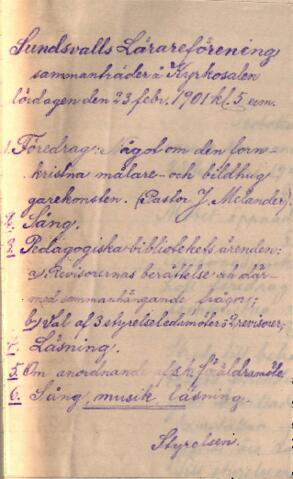 Sundsvalls Lärareförening
sammanträder å Kyrkosalen
lördagen den 23 febr. 1901 kl. 5 e.m.
1. Föredrag: Något om den forn-
kristna målare- och bildhug
garekonsten. (Pastor J. Melander).
2. Sång.
3. Pedagogiska bibliotekets ärenden:
a) Revisorernas berättelse o. a där-
med sammanhängande frågor;
b) Val af 3 styrelseledamöter o. 2 revisorer;
4. Läsning.
5. Om anordnande af s. k. föräldramöte
6. Sång, musik, läsning.
Styrelsen.